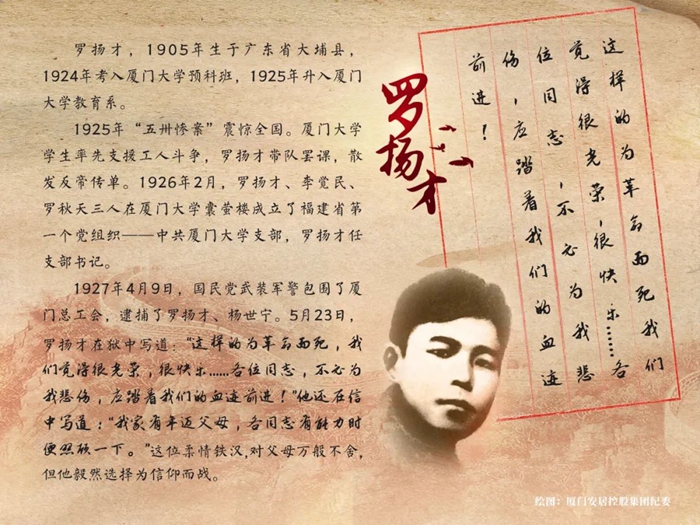 罗扬才，1905年生于广东省大埔县，
1924年考入厦门大学预科班，1925年升入厦门
大学教育系。
1925年“五卅惨案”震惊全国。厦门大学
学生率先支援工人斗争，罗扬才带队罢课，散
发反帝传单。1926年2月，罗扬才、李觉民、
罗秋天三人在厦门大学囊萤楼成立了福建省第
一个党组织——中共厦门大学支部，罗扬才任
支部书记。
1927年4月9日，国民党武装军警包围了厦
门总工会，逮捕了罗扬才、杨世宁。5月23日，
罗扬才在狱中写道：“这样的为革命而死，我
们觉得很光荣，很快乐……各位同志，不必为
我悲伤，应踏着我们的血迹前进！”他还在信
中写道：“我家有年迈父母，各同志有能力时
便照顾一下。”这位柔情铁汉，对父母万般不舍，
但他毅然选择为信仰而战。
罗扬才
这样的为革命而死我们
觉得很光荣，很快乐……各
位同志，不必为我悲
伤，应踏着我们的血迹
前进！
绘图：厦门安居控股集团纪委